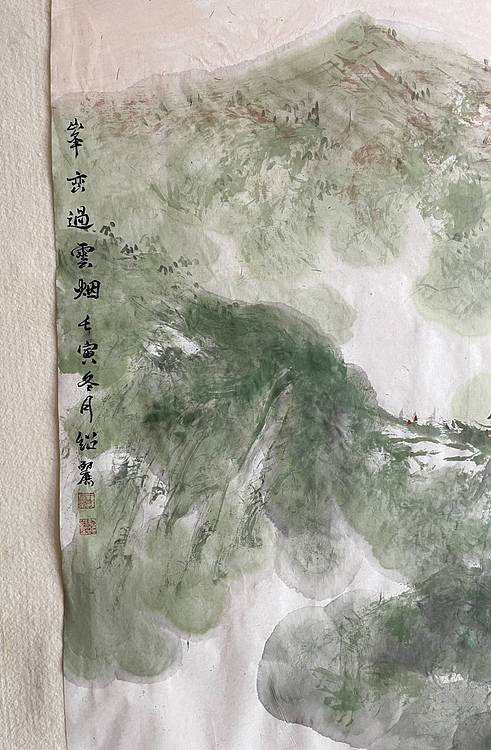 峯峦過雲烟壬寅冬月绍翟